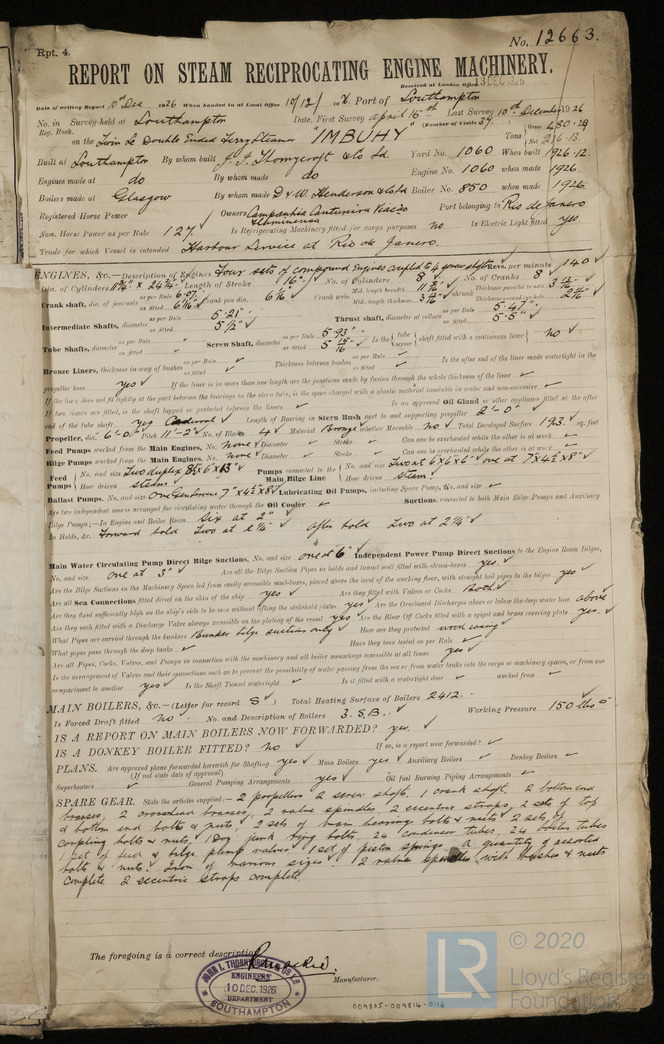 Rpt. 4.
No. 12663.
REPORT ON STEAM RECIPROCATING ENGINE MACHINERY.
Received at London Office 13 DEC 1926
Date of writing Report 10th Dec 1926 When handed in at Local Office 10/12/1926 Port of Southampton
No. in Reg. Book. Survey held at Southampton Date, First Survey April 16th Last Survey 10th December 1926
(Number of Visits 37.)
on the Twin Sc Double Ended Ferry Steamer "IMBUHY" Tons Gross 450.29 Net 216.13
Built at Southampton By whom built J. I. Thornycroft & Co Ld. Yard No. 1060 When built 1926.12.
Engines made at do By whom made do Engine No. 1060 when made 1926.
Boilers made at Glasgow By whom made D & W. Henderson & Co Ld Boiler No. 850 when made 1926.
Registered Horse Power Owners Companhia Cantareira Viacao Fluminense Port belonging to Rio de Janeiro
Nom. Horse Power as per Rule 127. Is Refrigerating Machinery fitted for cargo purposes no. Is Electric Light fitted yes.
Trade for which Vessel is intended Harbour Service at Rio de Janeiro.
ENGINES, &c.—Description of Engines Four sets of compound Engines coupled to 4 screw shafts Revs. per minute 140
Dia. of Cylinders Length of Stroke 16" No. of Cylinders 8 No. of Cranks 8
Crank shaft, dia. of journals as per Rule 6.07" as fitted Crank pin dia. Crank webs Mid. length breadth Mid. length thickness shrunk Thickness parallel to axis Thickness around eye-hole
Intermediate Shafts, diameter as per Rule 5.21" as fitted 5½" Thrust shaft, diameter at collars as per Rule 5.47" as fitted
Tube Shafts, diameter as per Rule as fitted Screw Shaft, diameter as per Rule 5.93" as fitted Is the tube screw shaft fitted with a continuous liner no
Bronze Liners, thickness in way of bushes as per Rule as fitted Thickness between bushes as per Rule as fitted Is the after end of the liner made watertight in the
propeller boss yes If the liner is in more than one length are the junctions made by fusion through the whole thickness of the liner
If the liner does not fit tightly at the part between the bearings in the stern tube, is the space charged with a plastic material insoluble in water and non-corrosive
If two liners are fitted, is the shaft lapped or protected between the liners Is an approved Oil Gland or other appliance fitted at the after
end of the tube shaft yes Length of Bearing in Stern Bush next to and supporting propeller 2'-0"
Propeller, dia. 6'-0" Pitch 11'-2" No. of Blades 4 Material Bronze whether Moveable no Total Developed Surface 193. sq. feet
Feed Pumps worked from the Main Engines, No. none Diameter Stroke Can one be overhauled while the other is at work
Bilge Pumps worked from the Main Engines, No. none Diameter Stroke Can one be overhauled while the other is at work
Feed Pumps No. and size Two duplex How driven steam Pumps connected to the Main Bilge Line No. and size Two at 6"x6"x6" one at 7"x4½"x8" How driven steam
Ballast Pumps, No. and size 7"x4½"x8" Lubricating Oil Pumps, including Spare Pump, No. and size
Are two independent means arranged for circulating water through the Oil Cooler Suctions, connected to both Main Bilge Pumps and Auxiliary
Bilge Pumps;—In Engine and Boiler Room Six at 2"
In Holds, &c. Forward hold Two at 2¼" After hold Two at 2¼"
Main Water Circulating Pump Direct Bilge Suctions, No. and size one at 6" Independent Power Pump Direct Suctions to the Engine Room Bilges,
No. and size one at 3" Are all the Bilge Suction Pipes in holds and tunnel well fitted with strum-boxes yes.
Are the Bilge Suctions in the Machinery Space led from easily accessible mud-boxes, placed above the level of the working floor, with straight tail pipes to the bilges yes
Are all Sea Connections fitted direct on the skin of the ship yes Are they fitted with Valves or Cocks Both.
Are they fixed sufficiently high on the ship's side to be seen without lifting the stokehold plates yes Are the Overboard Discharges above or below the deep water line above
Are they each fitted with a Discharge Valve always accessible on the plating of the vessel yes Are the Blow Off Cocks fitted with a spigot and brass covering plate yes.
What Pipes are carried through the bunkers Bunker bilge suctions only How are they protected wood casing
What pipes pass through the deep tanks Have they been tested as per Rule
Are all Pipes, Cocks, Valves, and Pumps in connection with the machinery and all boiler mountings accessible at all times yes
Is the arrangement of Valves and their connections such as to prevent the possibility of water passing from the sea or from water tanks into the cargo or machinery spaces, or from one
compartment to another yes Is the Shaft Tunnel watertight Is it fitted with a watertight door worked from
MAIN BOILERS, &c.—(Letter for record S) Total Heating Surface of Boilers 2412.
Is Forced Draft fitted no No. and Description of Boilers 3. S.B. Working Pressure 150 lbs
IS A REPORT ON MAIN BOILERS NOW FORWARDED? yes.
IS A DONKEY BOILER FITTED? no If so, is a report now forwarded?
PLANS. Are approved plans forwarded herewith for Shafting yes Main Boilers yes Auxiliary Boilers Donkey Boilers
(If not state date of approval)
Superheaters General Pumping Arrangements yes Oil fuel Burning Piping Arrangements
SPARE GEAR. State the articles supplied:— 2 propellers 2 screw shafts, 1 crank shaft, 2 bottom end
brasses, 2 crosshead brasses, 2 valve spindles 2 eccentric straps, 2 sets of top
& bottom end bolts & nuts, 2 sets of main bearing bolts & nuts 2 sets of
coupling bolts & nuts. 1 Doz. junk ring bolts, 24 condenser tubes, 24 boiler tubes
1 set of feed & bilge pump valves 1 set of piston springs. A quantity of assorted
bolts & nuts. Iron of various sizes. 2 valve spindles with bushes & nuts
complete 2 eccentric straps complete
The foregoing is a correct description,
Manufacturer.
JOHN I. THORNYCROFT & CO LD
ENGINEERS
10 DEC. 1926
DEPARTMENT
SOUTHAMPTON
009805-009814-0116
LR © 2020
Lloyd's Register
Foundation